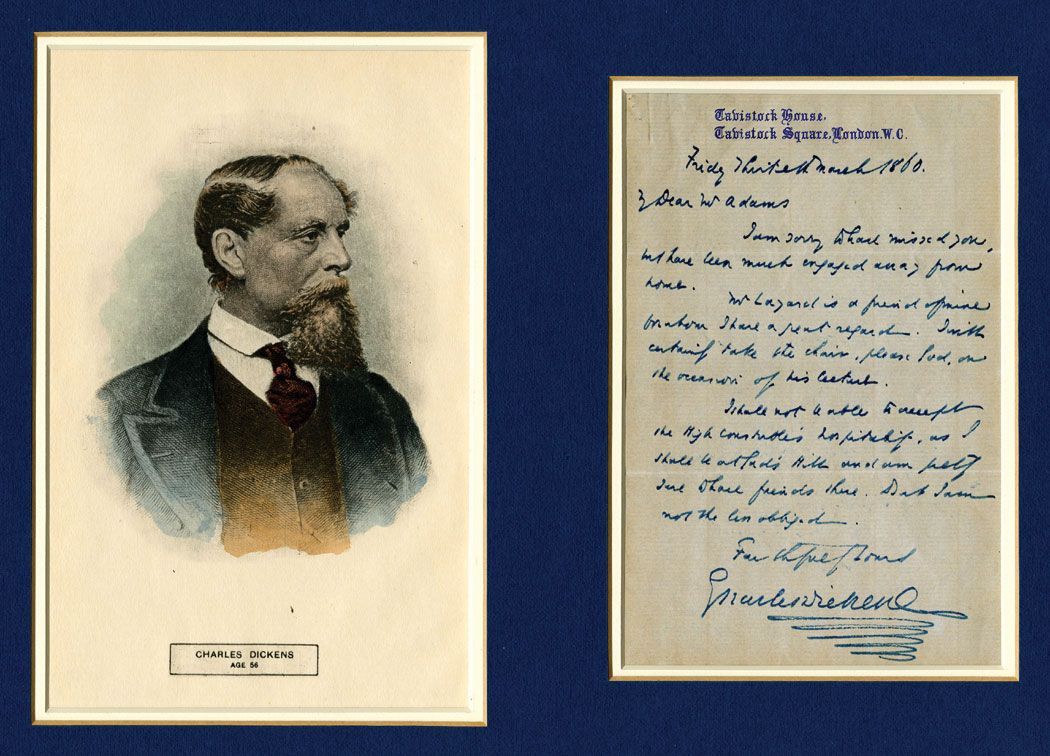 CHARLES DICKENS
AGE 56
Tavistock House,
Tavistock Square, London. W.C.
Friday Thirtieth March 1860.
My Dear Mr Adams
I am sorry to have missed you,
but have been much engaged away from
home.
Mr Layard is a friend of mine
for whom I have a great regard. I will
certainly take the chair, please God, on
the occasion of his lecture.
I shall not be able to accept
the High Constable's hospitality, as I
shall be at Gad's Hill and am pretty
sure to have friends there. But I am
not the less obliged.
Faithfully Yours
Charles Dickens